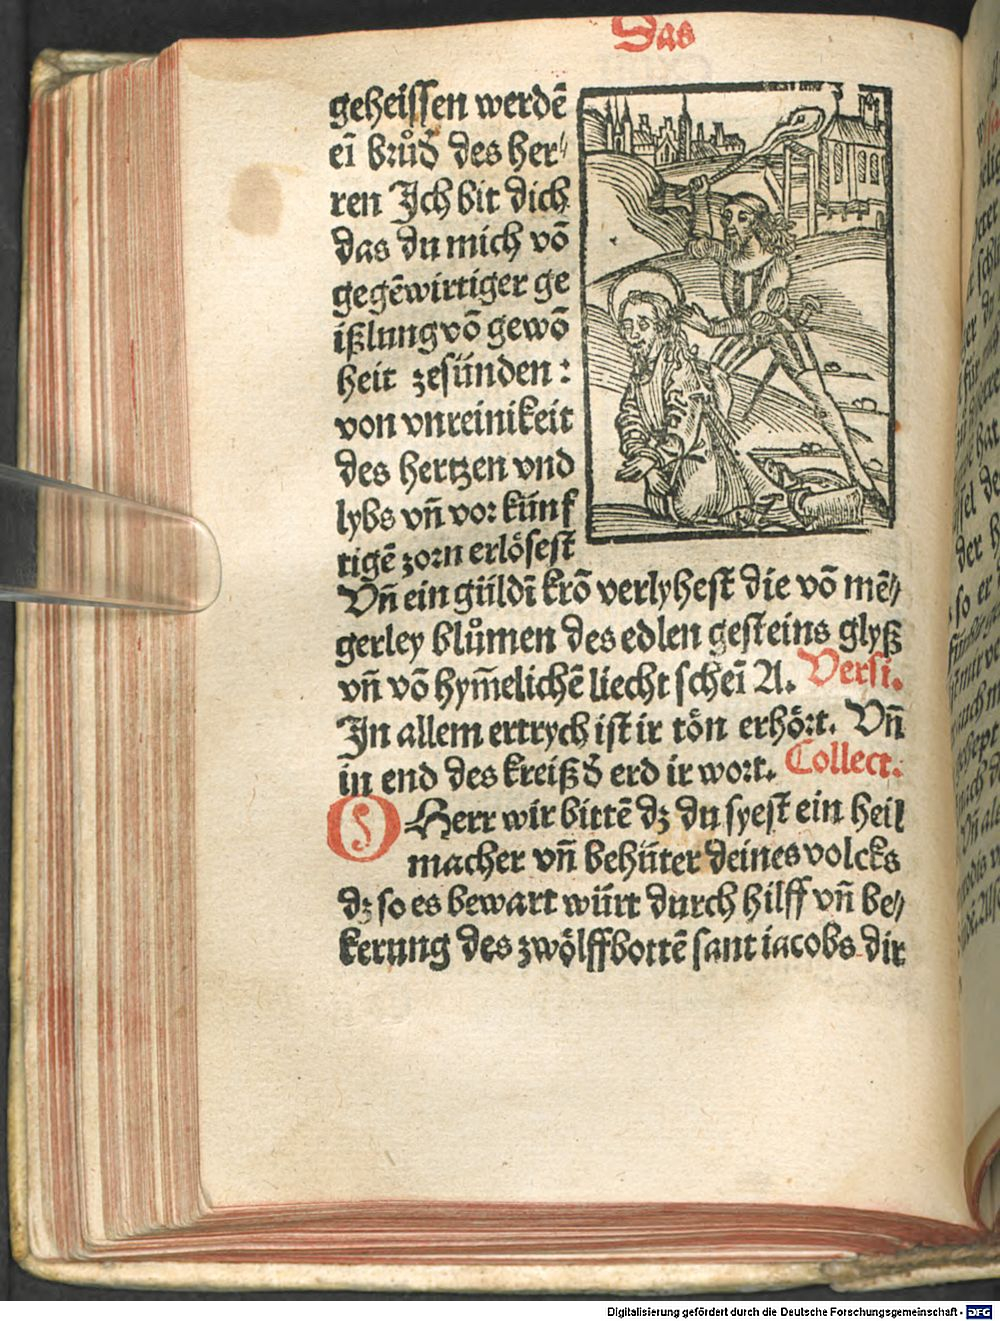 Das
geheissen werdē
eī brůď des her⸗
ren Ich bit dich
das du mich vō
gegēwirtiger ge
ißlung vō gewō
heit zesünden :
von vnreinikeit
des hertzen vnd
lybs vn̄ vor künf
tigē zorn erlösest
Vn̄ ein güldī krō verlyhest die vō mē⸗
gerley blůmen des edlen gesteins glyß
vn̄ vō hym̄elichē liecht scheī A. Versi.
In allem ertrych ist ir tön erhört. Vn̄
in end des kreiß ď erd ir wort. Collect.
O Herr wir bittē dz du syest ein heil
macher vn̄ behüter deines volcks
dz so es bewart würt durch hilff vn̄ be⸗
kerung des zwölffbottē sant iacobs dir
Digitalisierung gefördert durch die Deutsche Forschungsgemeinschaft - DFG